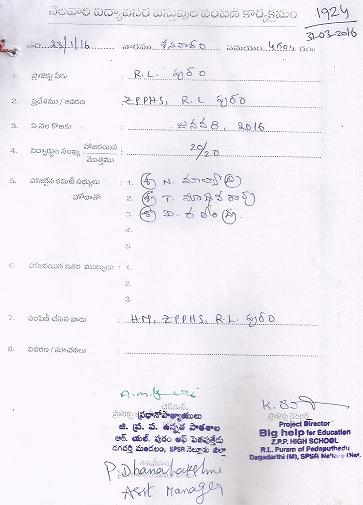 నెలవారీ విద్యావసర వస్తువుల పంపిణీ కార్యక్రమం
1924
31-03-2016
తేది: 23/1/16 వారము శనివారం సమయం:
1. ప్రాజెక్టు పేరు : R.L. పురం
2. ప్రదేశము / ఆవరణ : ZPPHS, R.L పురం
3. ఏ నెల కొరకు : జనవరి, 2016
4. విద్యార్థుల సంఖ్య హాజరయిన : 20/20
మొత్తము
5. హాజరైన కమిటీ సభ్యులు : 1. శ్రీ N.
హోదాతో 2. శ్రీ T.
3. శ్రీ D.
4.
5.
6. హాజరయిన ఇతర ముఖ్యులు : 1.
2.
3.
7. పంపిణీ చేసిన వారు : H.M, ZPPHS, R.L. పురం
8. వివరణ / సూచనలు :
ప్రధానోపాధ్యాయులు
జి. ప్ర. ప. ఉన్నత పాఠశాల
ఆర్. యల్. పురం ఆఫ్ పెదపుత్తేడు
దగదర్తి మండలం, SPSR నెల్లూరు జిల్లా
P. Dhanalakshmi
Asst Manager
Project Director
Big help for Education
Z.P.P. HIGH SCHOOL
R.L. Puram of Pedaputhedu
Dagadarthi (M), SPSR Nellore (Dt).